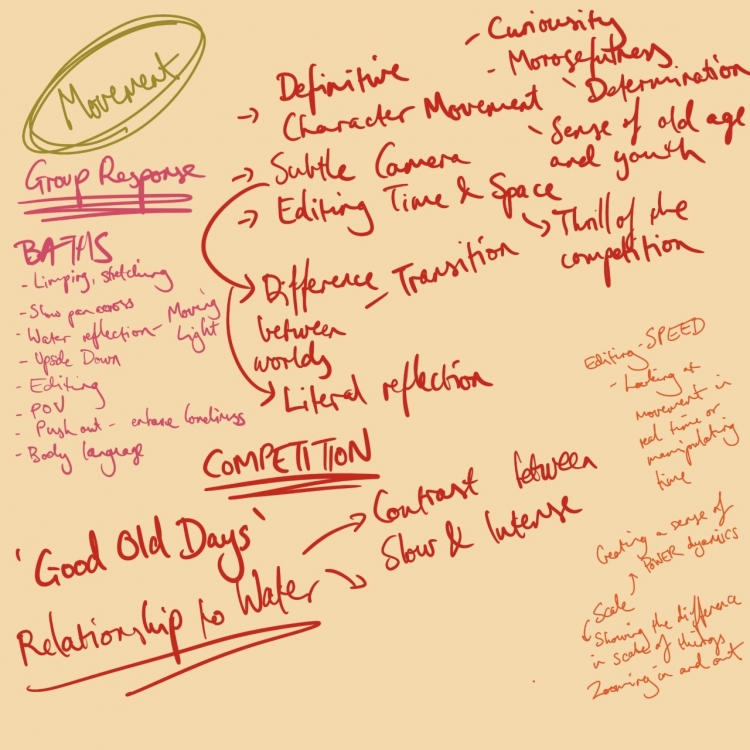 Movement
Group Response
BATHS
- Limping, stretching
- Slow pan across
- Water reflection - Moving
Light
- Upside Down
- Editing
- POV
- Push out - enhance loneliness
- Body language
-> Definitive
Character Movement
- Curiousity
- Morosefulness
- Determination
- Sense of old age
and youth
-> Subtle Camera
-> Editing Time & Space
Thrill of the
competition
Difference - Transition
between
worlds
Literal reflection
COMPETITION
'Good Old Days'
Relationship to Water
Contrast between
Slow & Intense
Editing - SPEED
- Looking at
movement in
real time or
manipulating
time
Creating a sense of
POWER dynamics
Scale
Showing the difference
in scale of things
Zooming in and out